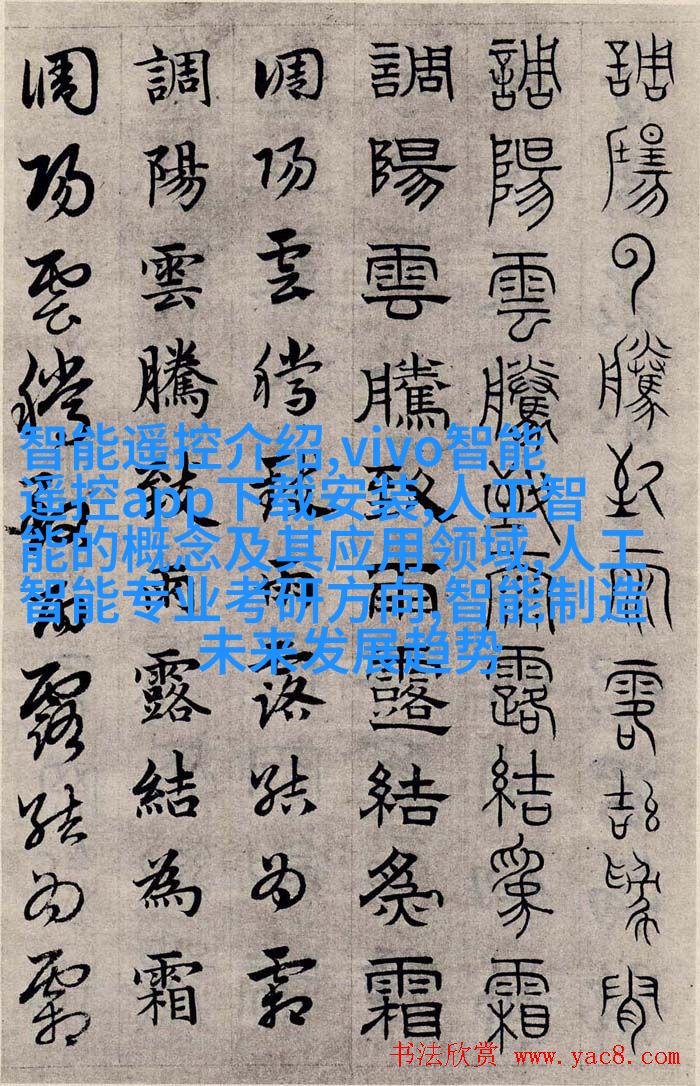 調陽雲騰致雨露結為霜
調陽雲騰致雨露結為霜
調陽雲騰致雨露結為霜
調陽雲騰致雨露結為霜
調陽雲騰致雨露結為霜
調陽雲騰致雨露結為霜
智能遥控介绍,vivo智能
遥控app下载安装,人工智
能的概念及其应用领域,人工
智能专业考研方向,智能制造
未来发展趋势
书法欣赏 www.yac8.com